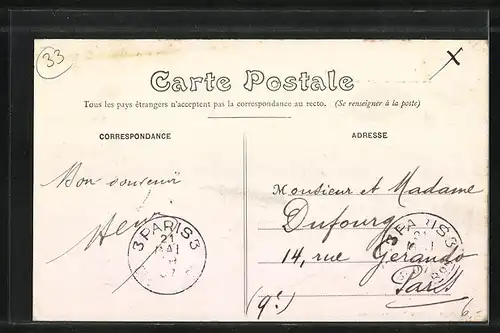 33
x
Carte Postale
Tous les pays étrangers n'acceptent pas la correspondance au recto. (Se renseigner à la poste)
CORRESPONDANCE
ADRESSE
Bon souvenir
3 PARIS 3
21
MAI
07
Monsieur et Madame
Dufourg
3 PARIS 3
21
14, rue Gerando
Paris
(9e)
6.-